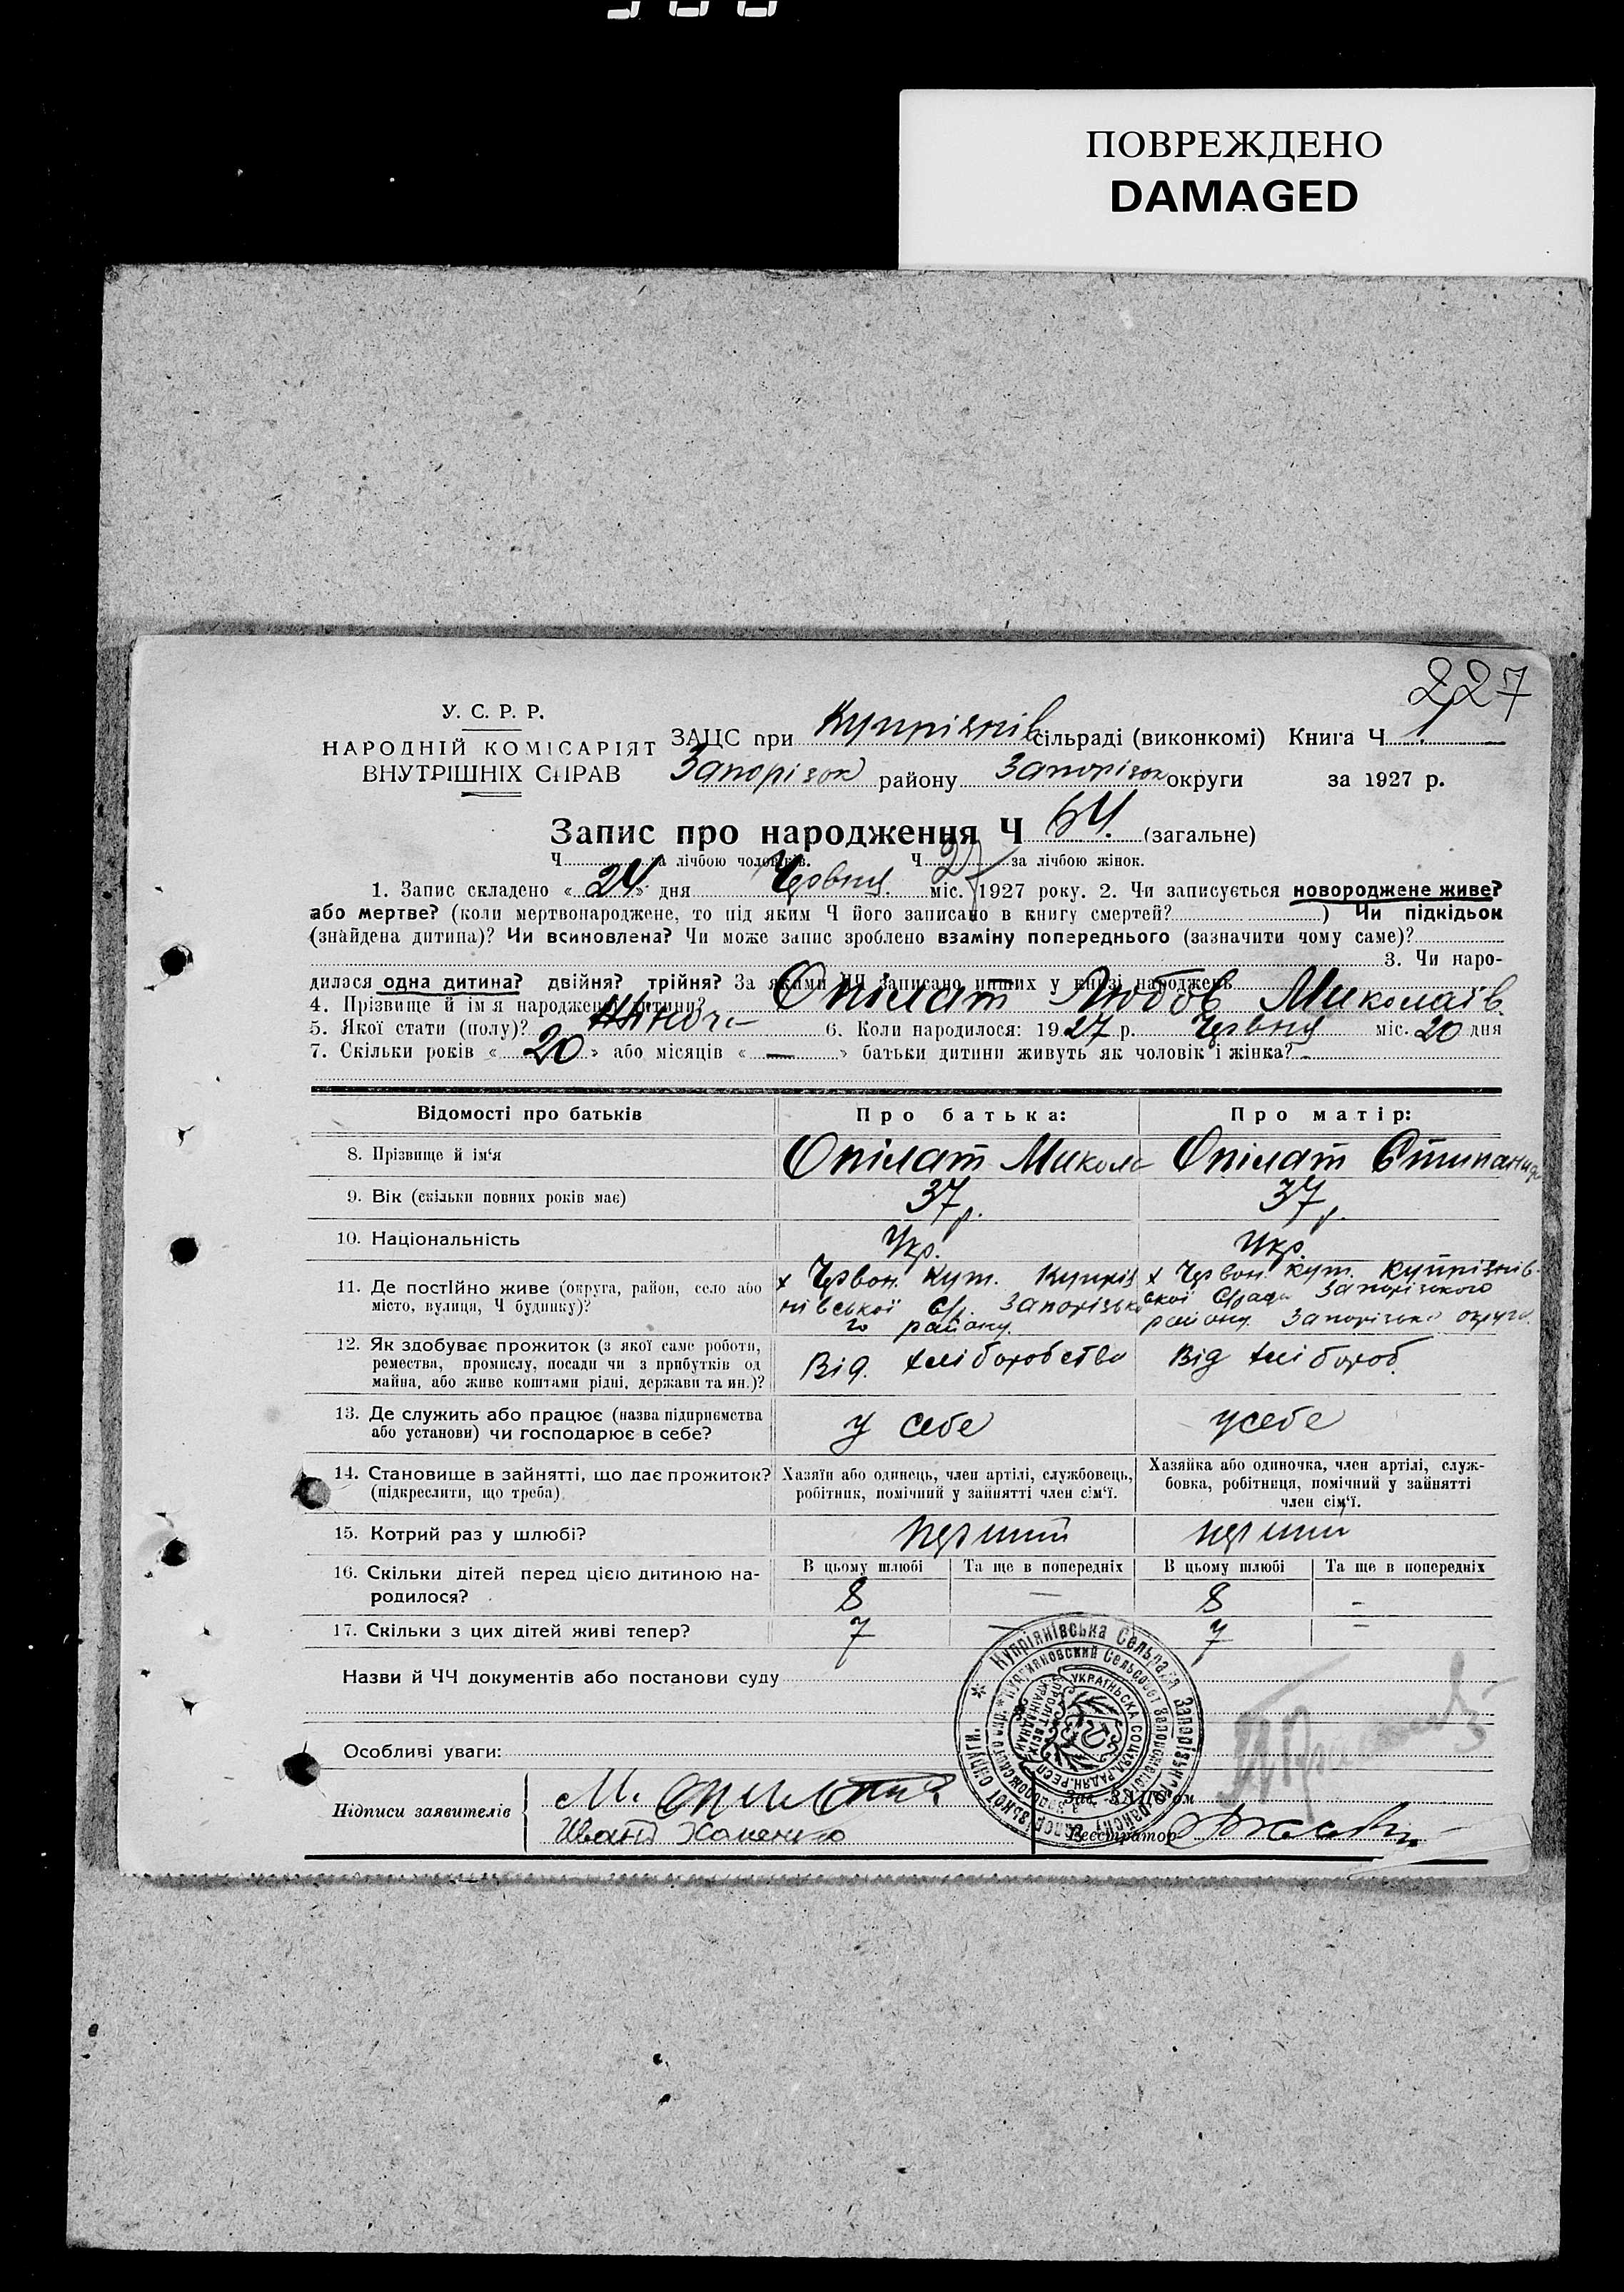 ПОВРЕЖДЕНО
DAMAGED
227
У. С. Р. Р.
НАРОДНІЙ КОМІСАРІЯТ
ВНУТРІШНІХ СПРАВ
ЗАЦС при Купріянів сільраді (виконкомі) Книга Ч 1
Запорізьк району Запорізьк округи за 1927 р.
Запис про народження Ч 64. (загальне)
Ч за лічбою чоловіків. Ч 27 за лічбою жінок.
1. Запис складено « 24 » дня Червня міс. 1927 року. 2. Чи записується новороджене живе?
або мертве? (коли мертвонароджене, то під яким Ч його записано в книгу смертей? ) Чи підкідьок
(знайдена дитина)? Чи всиновлена? Чи може запис зроблено взаміну попереднього (зазначити чому саме)?
3. Чи наро-
дилася одна дитина? двійня? трійня? За якими ЧЧ записано инших у книзі народжень
4. Прізвище й ім'я народженої дитини? Опілат Любов Миколаїв.
5. Якої стати (полу)? Жіноч- 6. Коли народилося: 1927 р. Червня міс. 20 дня
7. Скільки років « 20 » або місяців « — » батьки дитини живуть як чоловік і жінка?
Відомості про батьків Про батька: Про матір:
8. Прізвище й ім'я Опілат Микола Опілат Степанида
9. Вік (скільки повних років має) 37 р. 37 р.
10. Національність Укр. Укр.
11. Де постійно живе (округа, район, село або місто, вулиця, Ч будинку)?
х Червон. Кут. Купрія
нівської С/р. Запорізько
го району.
х Червон. Кут. Купріянів-
ської С/ради Запорізького
району Запорізької округи.
12. Як здобуває прожиток (з якої саме роботи,
ремества, промислу, посади чи з прибутків од
майна, або живе коштами рідні, держави та ин.)?
Від. хліборобства Від хлібороб.
13. Де служить або працює (назва підприємства
або установи) чи господарює в себе?
у себе у себе
14. Становище в зайнятті, що дає прожиток?
(підкреслити, що треба)
Хазяїн або одинець, член артілі, службовець,
робітник, помічний у зайнятті член сім'ї.
Хазяйка або одиночка, член артілі, служ-
бовка, робітниця, помічний у зайнятті
член сім'ї.
15. Котрий раз у шлюбі? перший перший
16. Скільки дітей перед цією дитиною на-
родилося?
В цьому шлюбі Та ще в попередніх В цьому шлюбі Та ще в попередніх
8 — 8 -
17. Скільки з цих дітей живі тепер? 7 — 7 -
Назви й ЧЧ документів або постанови суду
Особливі уваги:
Підписи заявителів
М. Опилат
Иван Хоменко
Зав. ЗАЦС'ом
Реєстратор
Купріянівська Сельрада Запорізьк. району Запорізької округи.
УКРАЇНЬСКА СОЦІЯЛ. РАДЯН. РЕСП.